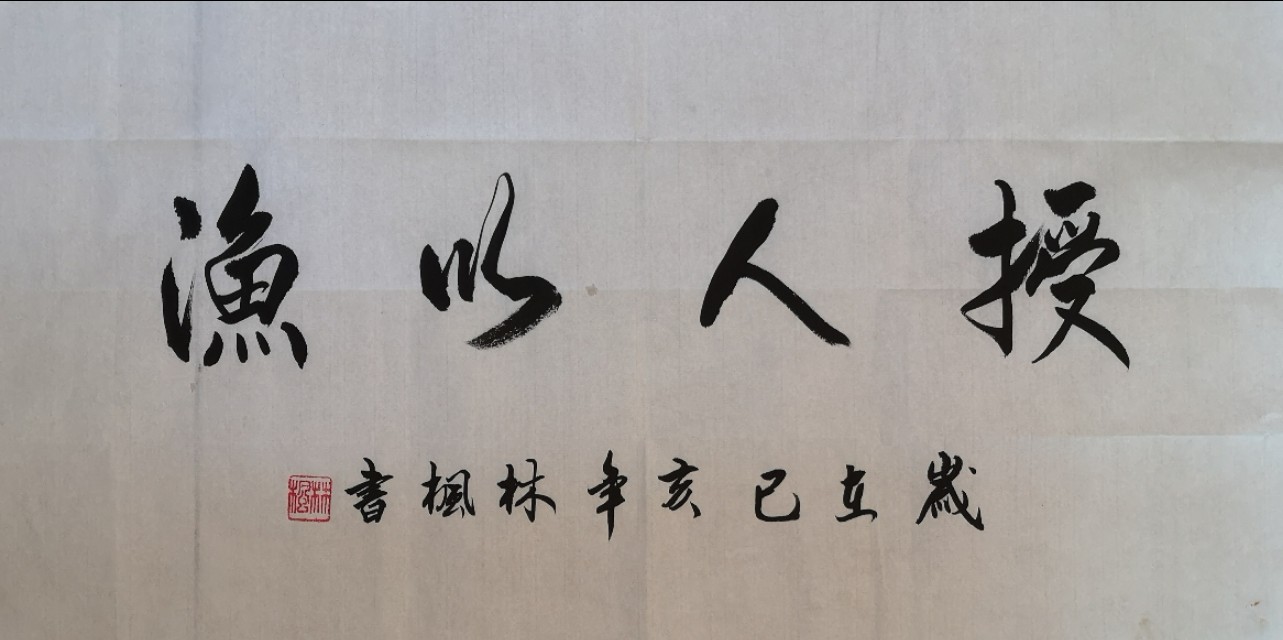 授人以漁
歲在己亥年林楓書